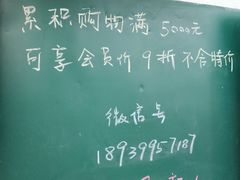 累积购物满5000元
可享会员价9折不含特价
微信号
18939957187